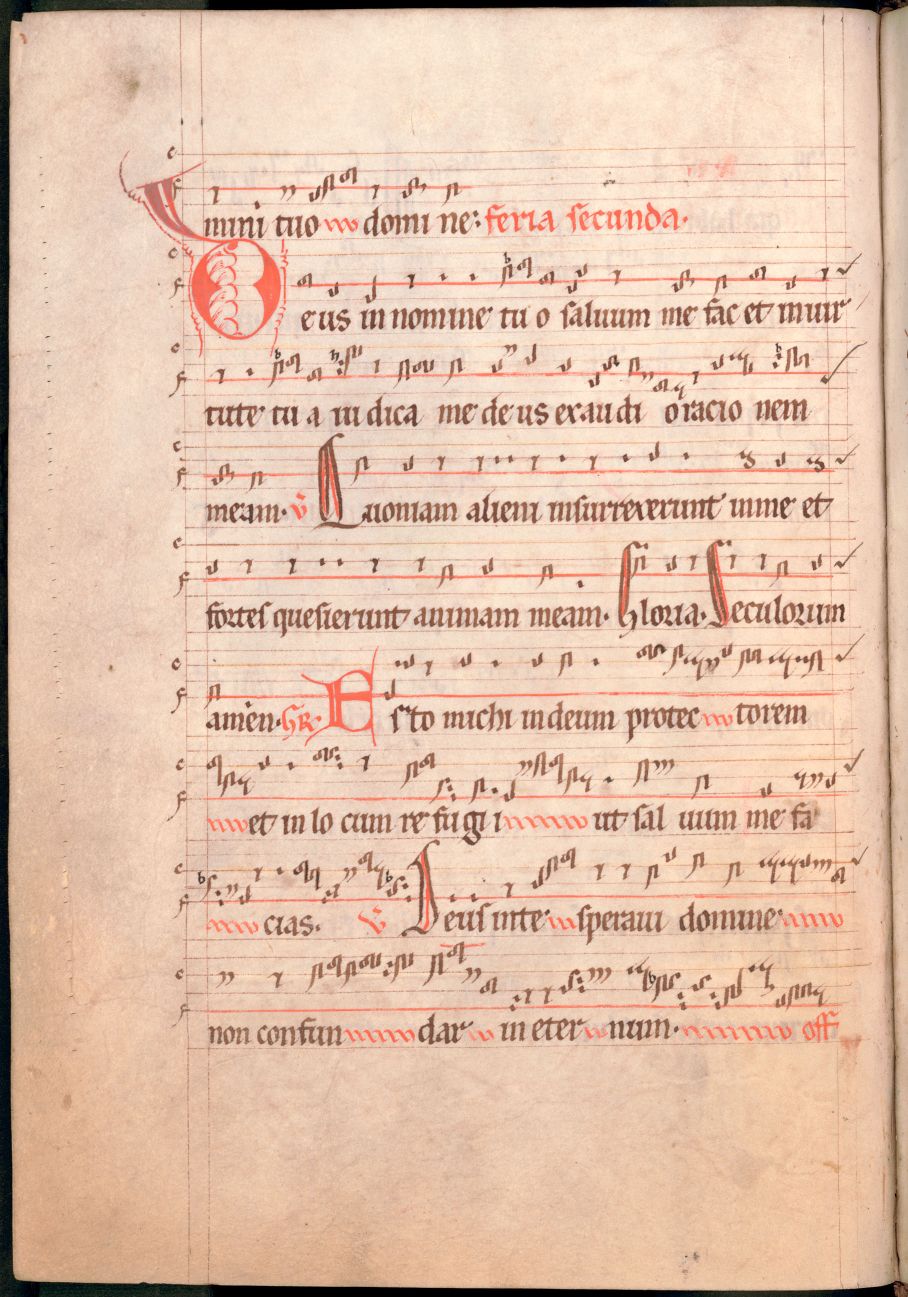 mini tuo domi ne: feria secunda.
Deus in nomine tu o saluum me fac et in uir
tute tu a iu dica me de us exau di oracio nem
meam. V Quoniam alieni insurrexerunt in me et
fortes quesierunt animam meam. Gloria. Seculorum
amen. GR. Es to michi in deum protec torem
et in lo cum re fu gi i ut sal uum me fa
cias. V Deus in te speraui domine
non confun dar in eter num. off